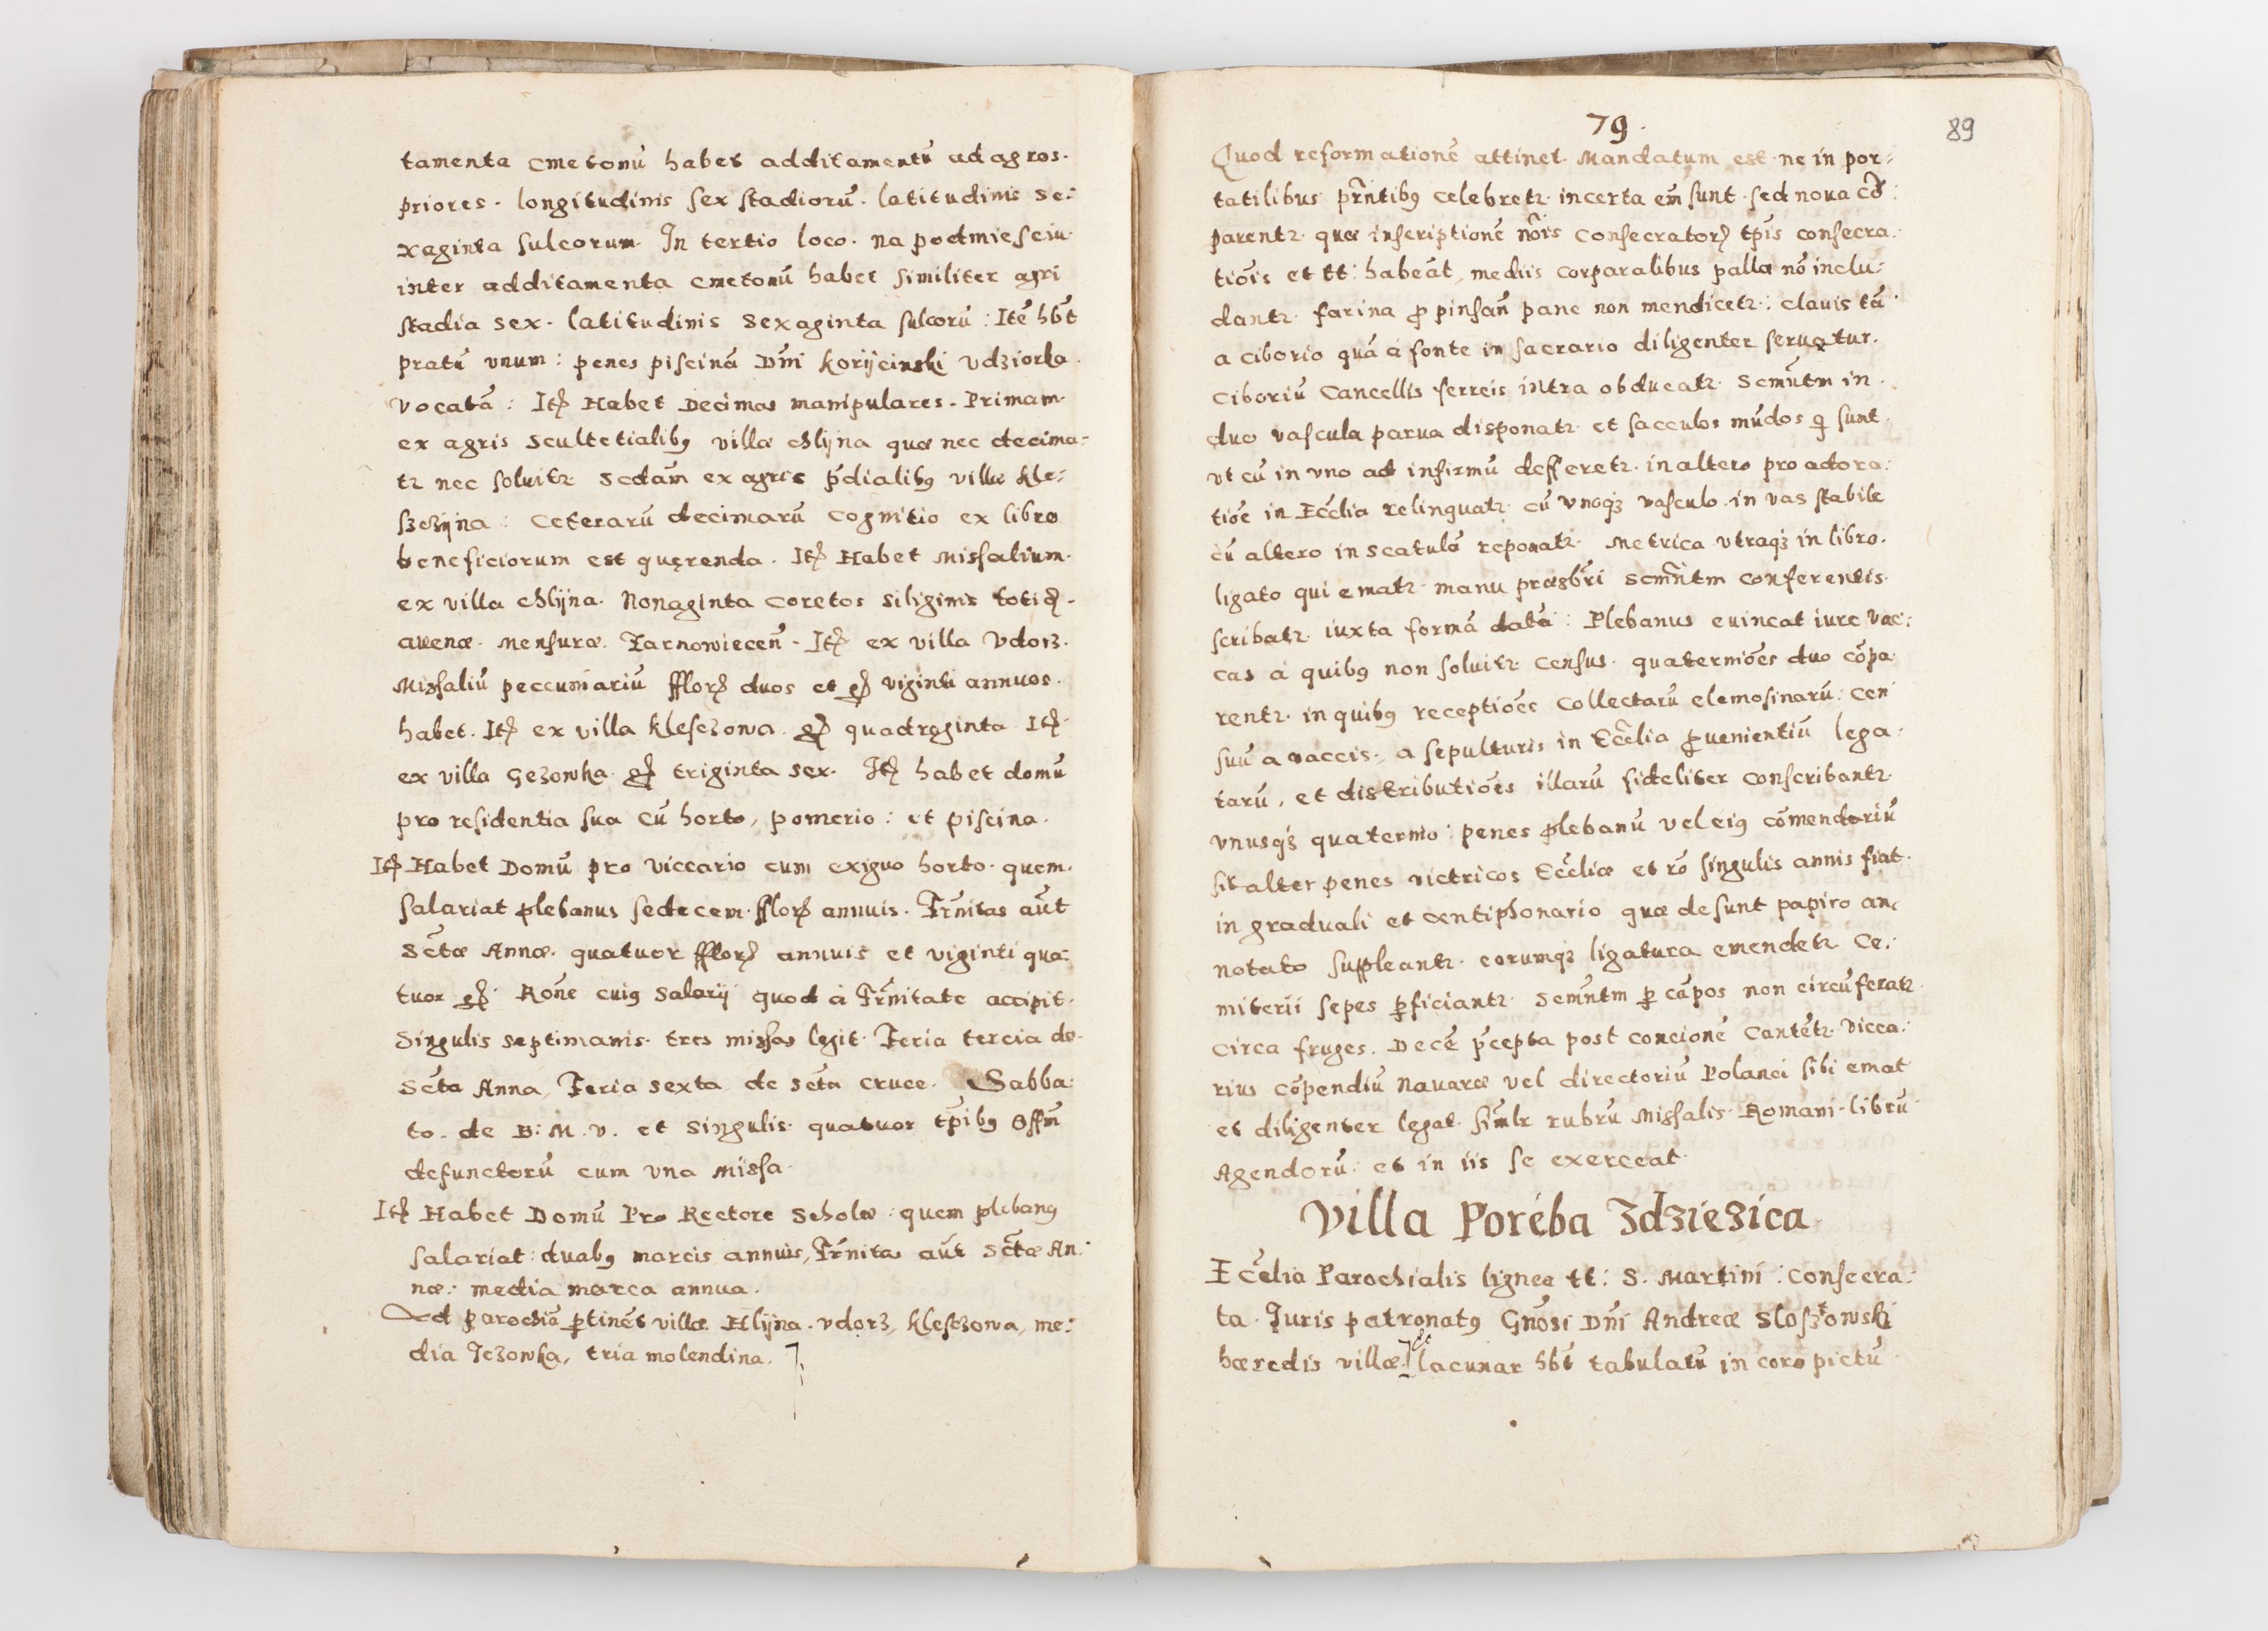 tamenta cmetonū habet additamentū ad agros.
priores. longitudinis sex stadiorū. latitudinis se:
xaginta sulcorum. In tertio loco. na podmiesciu.
inter additamenta cmetonū habet similiter agri
stadia sex. latitudinis sexaginta sulcorū: Itē hb̄t
pratū vnum: penes piscinā Dn̄i Korijcinski Vdziorka.
vocatā: Itꝫ Habet Decimas manipulares. Primam.
ex agris Scultetialibꝰ villæ chlijna quæ nec decima=
tꝛ nec soluitꝛ Sedām ex agris p̄dialibꝰ villæ Kle:
szczijna: Ceterarū decimarū cognitio ex libro
beneficiorum est quęrenda. Itꝫ Habet Missalium.
ex villa chlijna. Nonaginta coretos siliginis totiꝺ.
auenæ. Mensuræ. Tarnowiecen̄. Itꝫ ex villa Vdorz.
Missaliū peccuniariū fflorꝫ duos et gꝫ viginti annuos.
habet. Itꝫ ex villa Klesczowa. gꝫ quadraginta Itꝫ.
ex villa Gezowka. gꝫ triginta sex. Itꝫ habet domū
pro residentia sua cū horto, pomerio: et piscina.
Itꝫ Habet Domū pro viccario cum exiguo horto. quem.
salariat plebanus sedecem. fflorꝫ annuis. Tr̄nitas aūt
Sc̄tæ Annæ. quatuor fflorꝫ annuis et viginti qua:
tuor gꝫ. Rōne cuiꝰ Salarij quod à Tr̄nitate accipit.
Singulis septimanis. tres missas legit. Feria tercia de.
Sc̄ta Anna, Feria sexta de sc̄ta cruce. Sabba:
to. de B: M. V. et singulis. quatuor tp̄ibꝰ Offm̄
defunctorū cum vna missa.
Itꝫ Habet Domū Pro Rectore Scholæ: quem plebanꝰ
salariat: duabꝰ marcis annuis, Tr̄nitas aūt Sc̄tæ An:
næ: media marca annua.
Ad parochiā ꝑtinēt villæ Hlijna. Vdorz, Klesczowa, me:
dia Jezowka, tria molendina.
79.
89
Quod reformationē attinet. Mandatum est. ne in por:
tatilibus pr̄ntibꝰ celebretꝛ. incerta em̄ sunt. sed noua cō:
parentꝛ. quæ inscriptionē nōis consecratorꝫ tp̄is consecra.
tiōis et tt: habeāt, mediis corporalibus palla nō inclu:
dantꝛ. farina ꝓ pinsan̄ pane non mendicetꝛ: clauis tā.
a ciborio quā à fonte in sacrario diligenter seruatur.
Ciboriū Cancellis ferreis intra obducatꝛ. Scmn̄tm in.
duo vascula parua disponatꝛ et sacculos mūdos ꝗ sunt.
vt cū in vno ad infirmū defferetꝛ. in altero pro adora:
tiōe in Ecc̄lia relinquatꝛ. cū vnoqꝫ vasculo. in vas stabile
cū altero in scatulā reponatꝛ. Metrica vtraqꝫ in libro.
ligato qui ematꝛ. manu præsbr̄i Scmn̄tm conferentis.
scribatꝛ. iuxta formā datā: Plebanus euincat iure vac:
cas à quibꝰ non soluitꝛ census. quaterniōes duo cōpa.
rentꝛ. in quibꝰ receptiōes collectarū elemosinarū: Cen
suū a vaccis. a sepulturis in Ecc̄lia ꝓuenientiū lega:
tarū, et distributiōes illarū fideliter conscribantꝛ.
vnusqꝫ quaternio: penes plebanū vel eiꝰ cōmendariū
sit alter penes victricos Ecc̄liæ et rō singulis annis fiat.
in graduali et Antiphonario quæ desunt papiro an:
notato suppleantꝛ. eorumqꝫ ligatura emendetꝛ Ce:
miterii sepes ꝑficiantꝛ. Scmn̄tm ꝑ cāpos non circūferatꝛ.
circa fruges. Decē p̄cepta post concionē Cantētꝛ. Vicca:
rius cōpendiū Nauaræ vel directoriū Polanci sibi emat
et diligenter legat. sim̄lr rubrū Missalis. Romani. librū.
Agendorū: et in iis se exerceat.
Villa Poréba Zdzięzica
Ecc̄lia Parochialis lignea tt: S. Martini: Consecra:
ta. Juris patronatꝰ Gn̄osi Dn̄i Andreæ Sloszowski
hæredis villæ. et lacunar hb̄t tabulatū in coro pictū